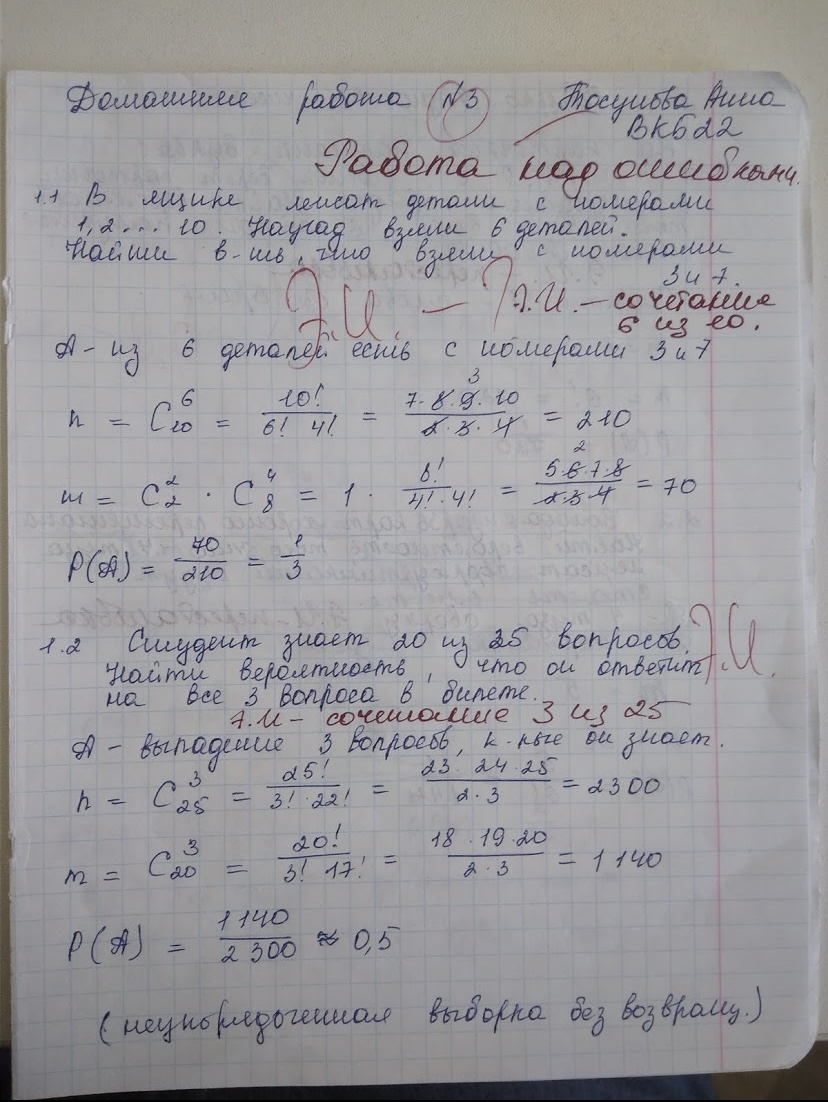 Домашнее работа №3 Тосунова Анна
ВКБ22
Работа над ошибками.
1.1 В ящике лежат детали с номерами
1, 2 ... 10. Наугад взяли 6 деталей.
Найти в-ть, что взяли с номерами
3 и 7.
Э.И. — Э.И. – сочетание
6 из 10.
А – из 6 деталей есть с номерами 3 и 7
n = C₁₀⁶ = 10!/(6! 4!) = (7·8·9·10)/(2·3·4) = 210
m = C₂² · C₈⁴ = 1 · 8!/(4!·4!) = (5·6·7·8)/(2·3·4) = 70
P(A) = 70/210 = 1/3
1.2 Студент знает 20 из 25 вопросов. Э.И.
Найти вероятность, что он ответит
на все 3 вопроса в билете.
Э.И – сочетание 3 из 25
А – выпадение 3 вопросов, к-рые он знает.
n = C₂₅³ = 25!/(3!·22!) = (23·24·25)/(2·3) = 2300
m = C₂₀³ = 20!/(3! 17!) = (18·19·20)/(2·3) = 1140
P(A) = 1140/2300 ≈ 0,5
(неупорядоченная выборка без возвращ.)